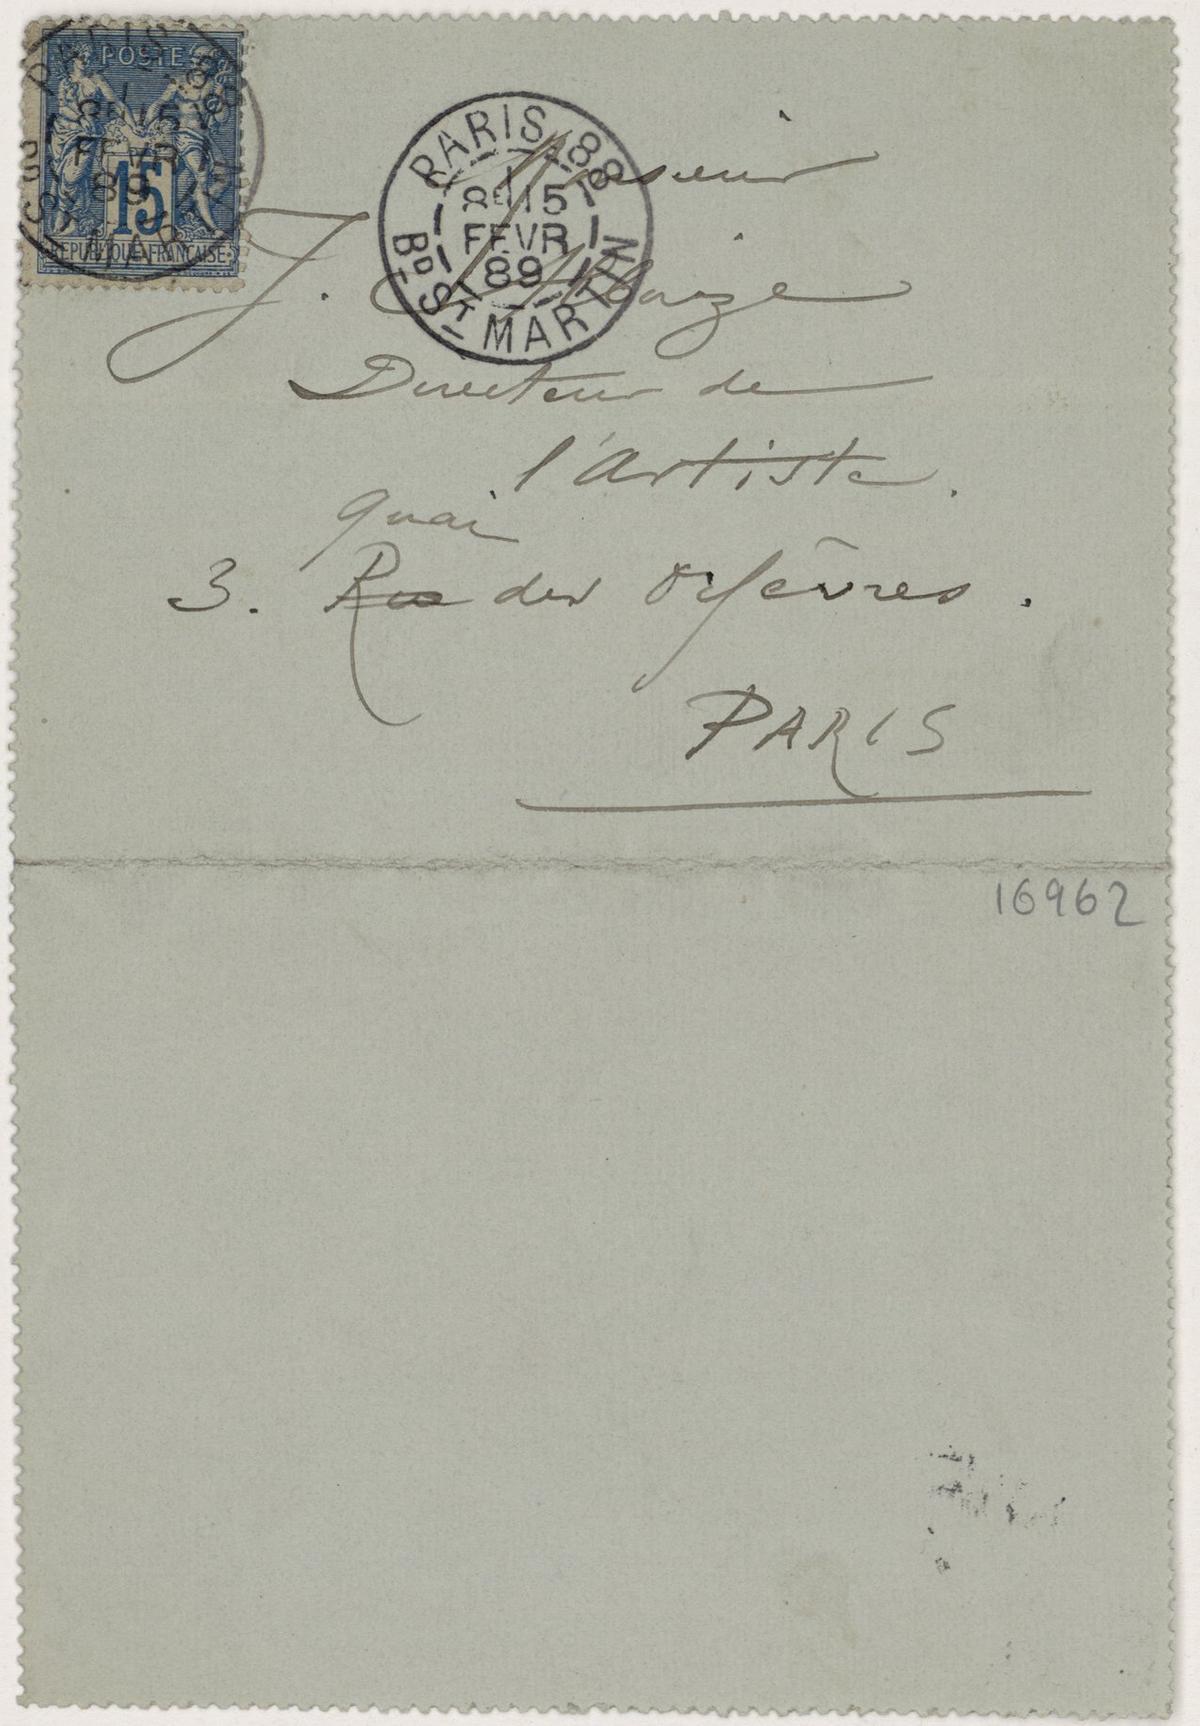 POSTE
15
REPUBLIQUE FRANÇAISE
PARIS 88
8E 15
FEVR
89
BD ST MARTIN
Monsieur
J.
Directeur de
l'Artiste.
quai
3. Rue des Orfèvres.
PARIS
16962